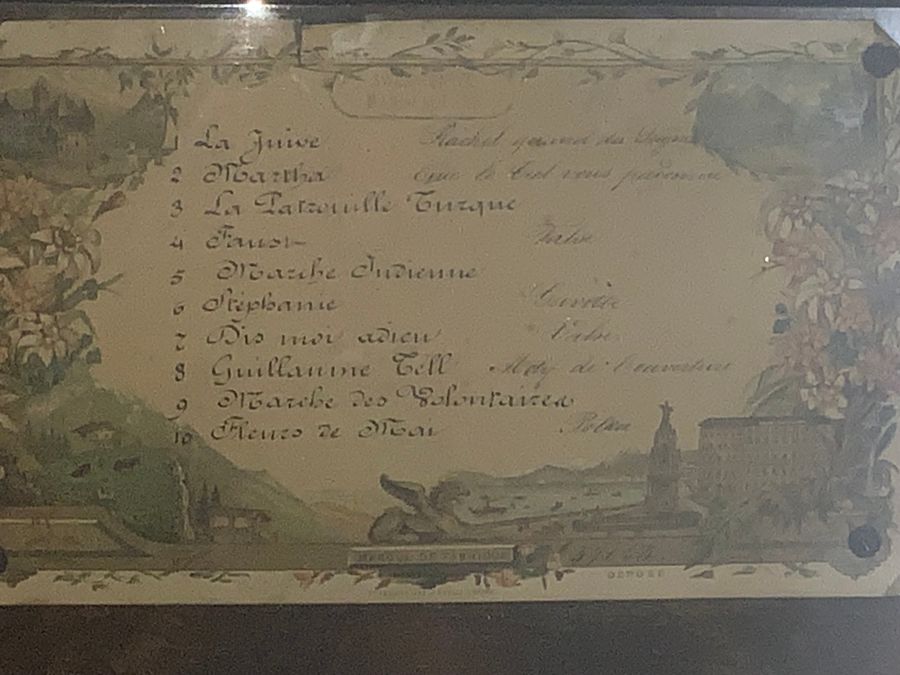 1 La Juive Rachel quand du Seigneur
2 Martha Que le Ciel vous pardonne
3 La Patrouille Turque
4 Faust Valse
5 Marche Indienne
6 Stéphanie Gavotte
7 Dis moi adieu Valse
8 Guillaume Tell de l'ouverture
9 Marche des Volontaires
10 Fleurs de Mai Polka
MARQUE DE FABRIQUE
DEPOSE